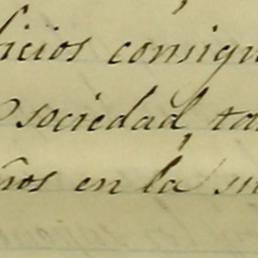 ficios consign
sociedad, ta
ños en la su